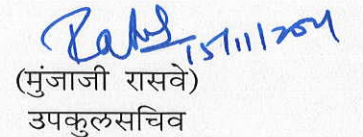 15/11/2011
(मुंजाजी रासवे)
उपकुलसचिव